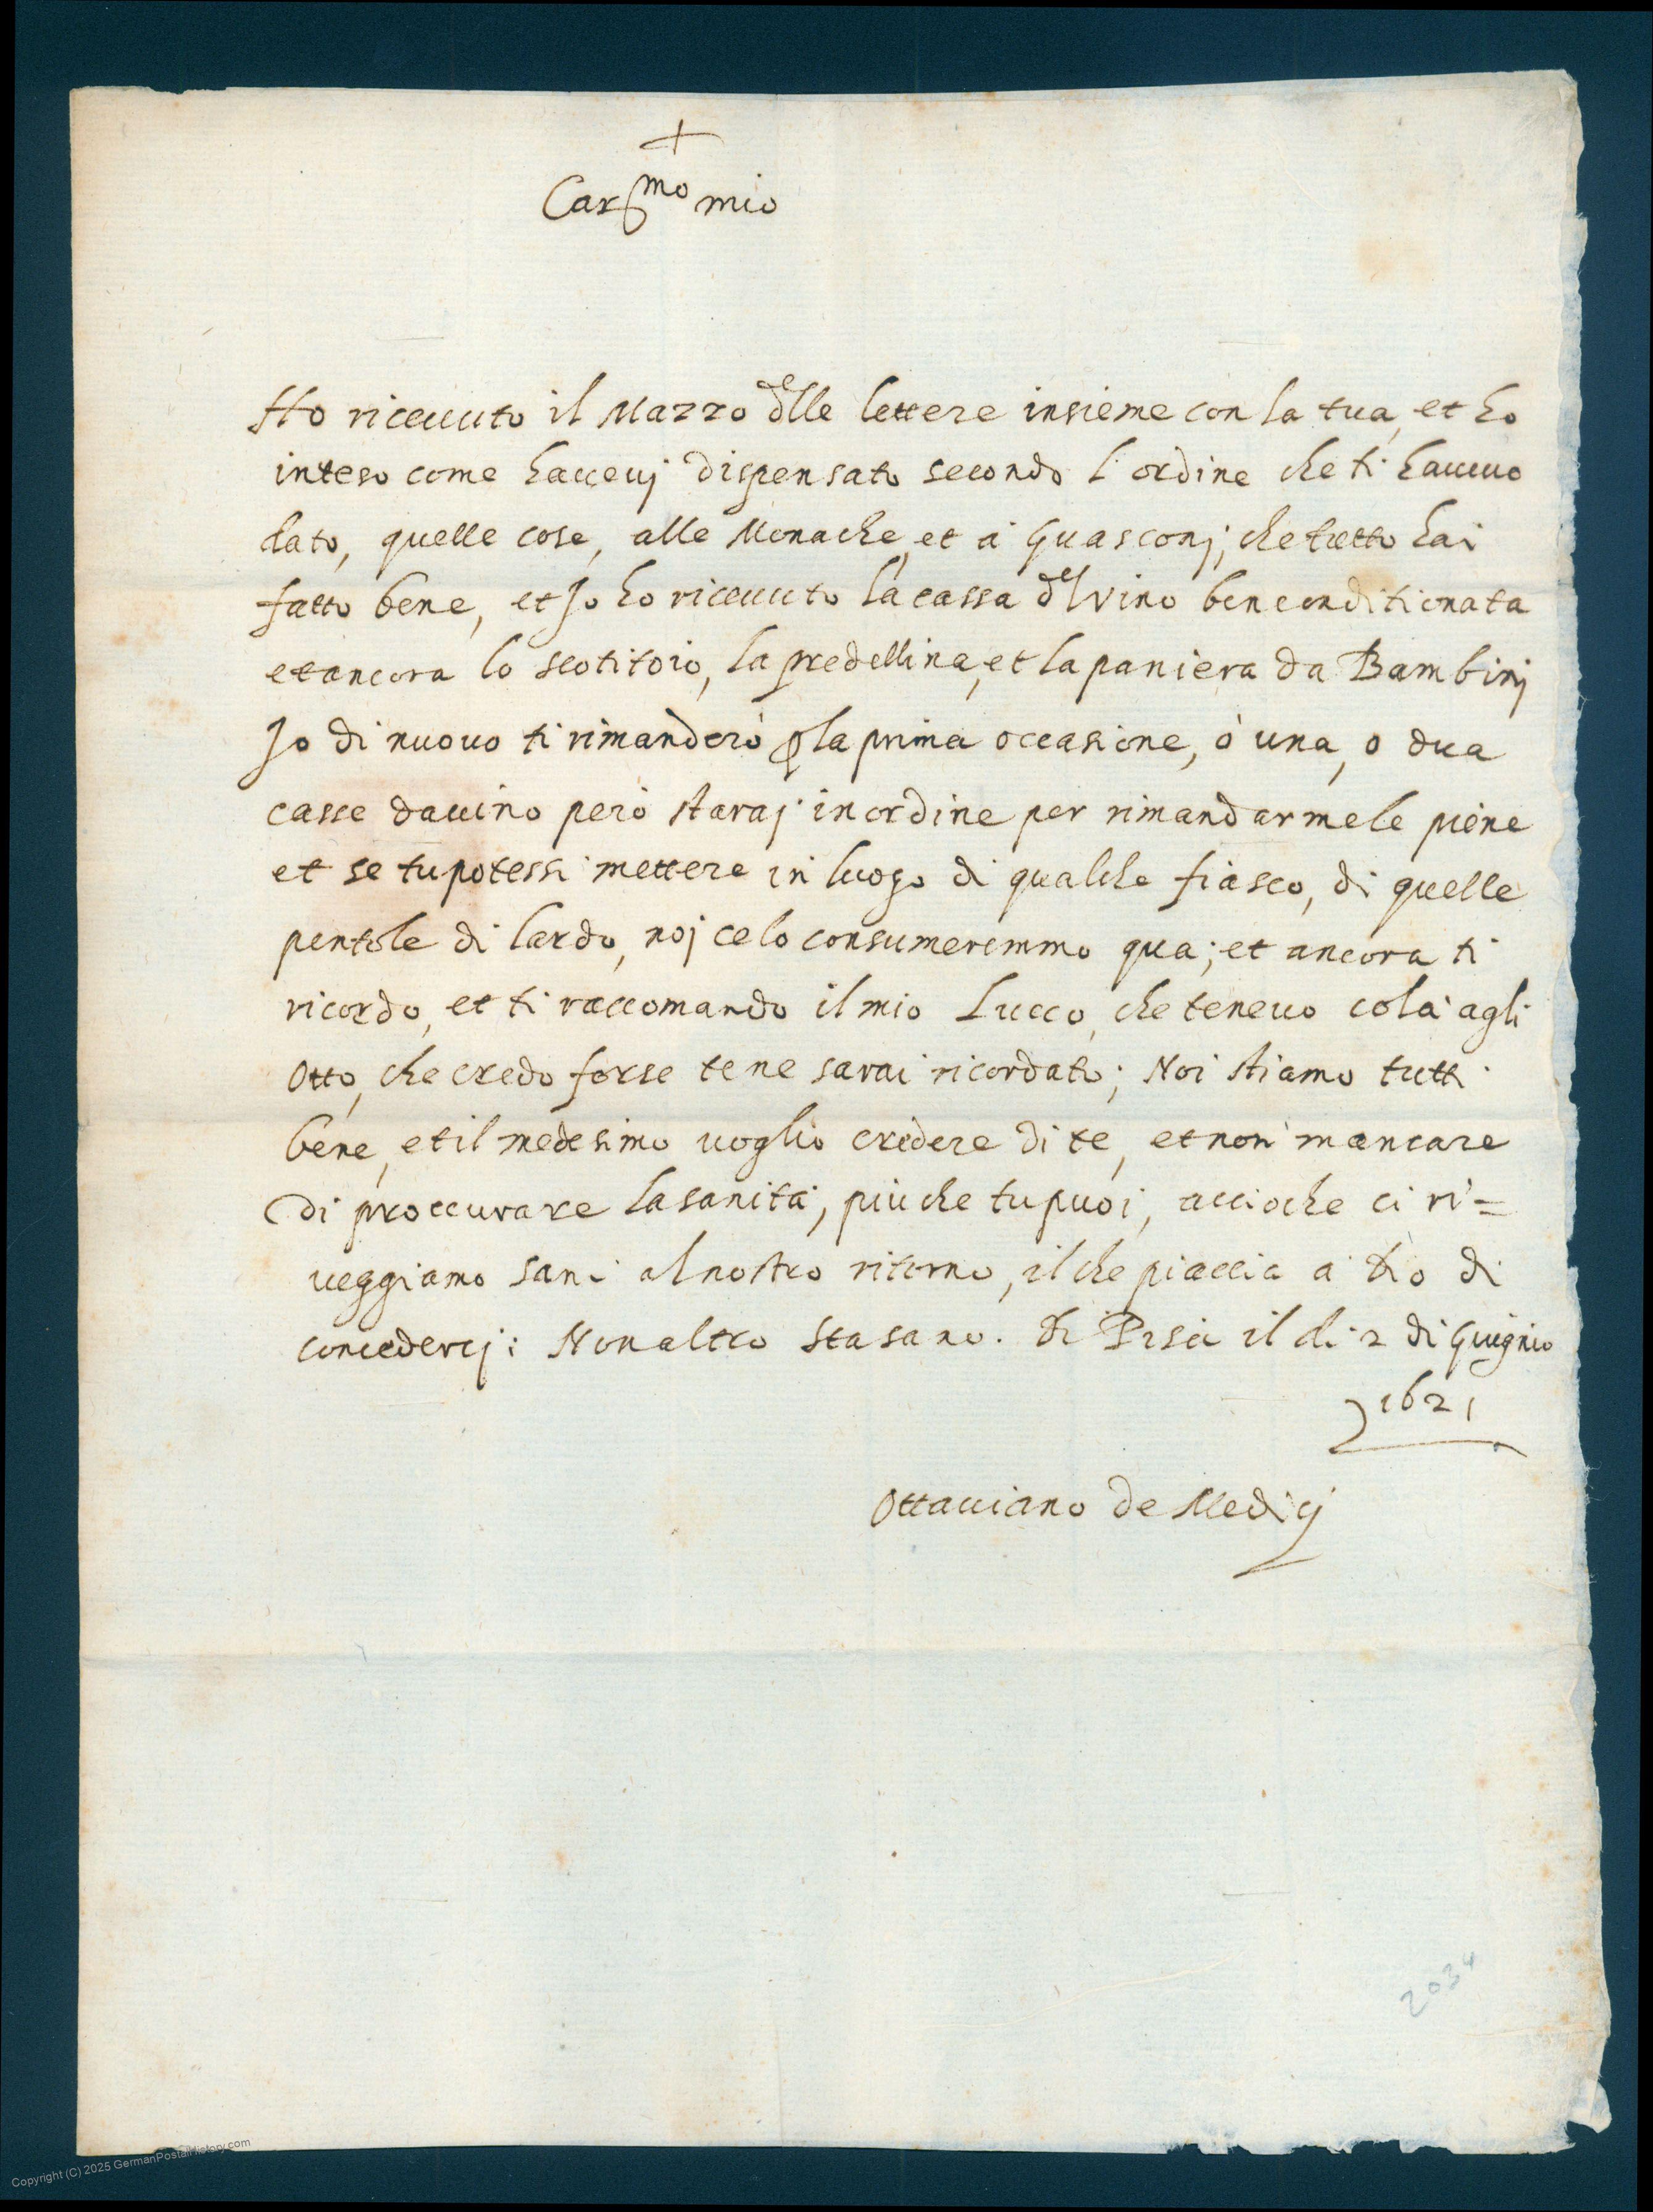 +
Car.mo mio
Ho riceuuto il Mazzo delle lettere insieme con la tua, et ho
inteso come haueuj dispensato secondo l'ordine che ti haueuo
dato, quelle cose, alle Monache, et a Guasconj, che tutto hai
fatto bene, et Jo ho riceuuto la cassa del vino ben conditionata
et ancora lo scotitoio, la predellina, et la paniera da Bambinj
Jo di nuouo ti rimanderò p la prima occasione, ò una, o dua
casse dauino però staraj in ordine per rimandarmele piene
et se tu potessi mettere in luogo di qualche fiasco, di quelle
pentole di lardo, noj celo consumeremmo qua; et ancora ti
ricordo, et ti raccomando il mio Lucco, che teneuo colà agli
Otto, che credo forse te ne sarai ricordato; Noi stiamo tutti
bene, et il medesimo uoglio credere di te, et non mancare
di proccurare la sanità, più che tu puoi, accioche ci ri=
ueggiamo sani al nostro ritorno, il che piaccia a Dio di
concedercj: Non altro sta sano. Di Pisa il di 2 di Giugnio
1621
Ottauiano de Medicj
2034
Copyright (C) 2025 GermanPostalHistory.com